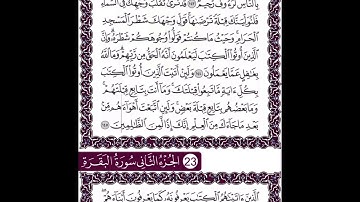 بِالنَّاسِ لَرَءُوفٌ رَّحِيمٌ ١٤٣ قَدْ نَرَىٰ تَقَلُّبَ وَجْهِكَ فِي السَّمَاءِ
فَلَنُوَلِّيَنَّكَ قِبْلَةً تَرْضَىٰهَا فَوَلِّ وَجْهَكَ شَطْرَ الْمَسْجِدِ
الْحَرَامِ وَحَيْثُ مَا كُنتُمْ فَوَلُّوا وُجُوهَكُمْ شَطْرَهُ وَإِنَّ
الَّذِينَ أُوتُوا الْكِتَٰبَ لَيَعْلَمُونَ أَنَّهُ الْحَقُّ مِن رَّبِّهِمْ وَمَا اللَّهُ
بِغَٰفِلٍ عَمَّا يَعْمَلُونَ ١٤٤ وَلَئِنْ أَتَيْتَ الَّذِينَ أُوتُوا الْكِتَٰبَ
بِكُلِّ ءَايَةٍ مَّا تَبِعُوا قِبْلَتَكَ وَمَا أَنتَ بِتَابِعٍ قِبْلَتَهُمْ
وَمَا بَعْضُهُم بِتَابِعٍ قِبْلَةَ بَعْضٍ وَلَئِنِ اتَّبَعْتَ أَهْوَاءَهُم مِّن
بَعْدِ مَا جَاءَكَ مِنَ الْعِلْمِ إِنَّكَ إِذًا لَّمِنَ الظَّٰلِمِينَ ١٤٥
23 الجُزءُ الثَّانِي سُورَةُ البَقَرَةِ
الَّذِينَ ءَاتَيْنَٰهُمُ الْكِتَٰبَ يَعْرِفُونَهُ كَمَا يَعْرِفُونَ أَبْنَاءَهُمْ